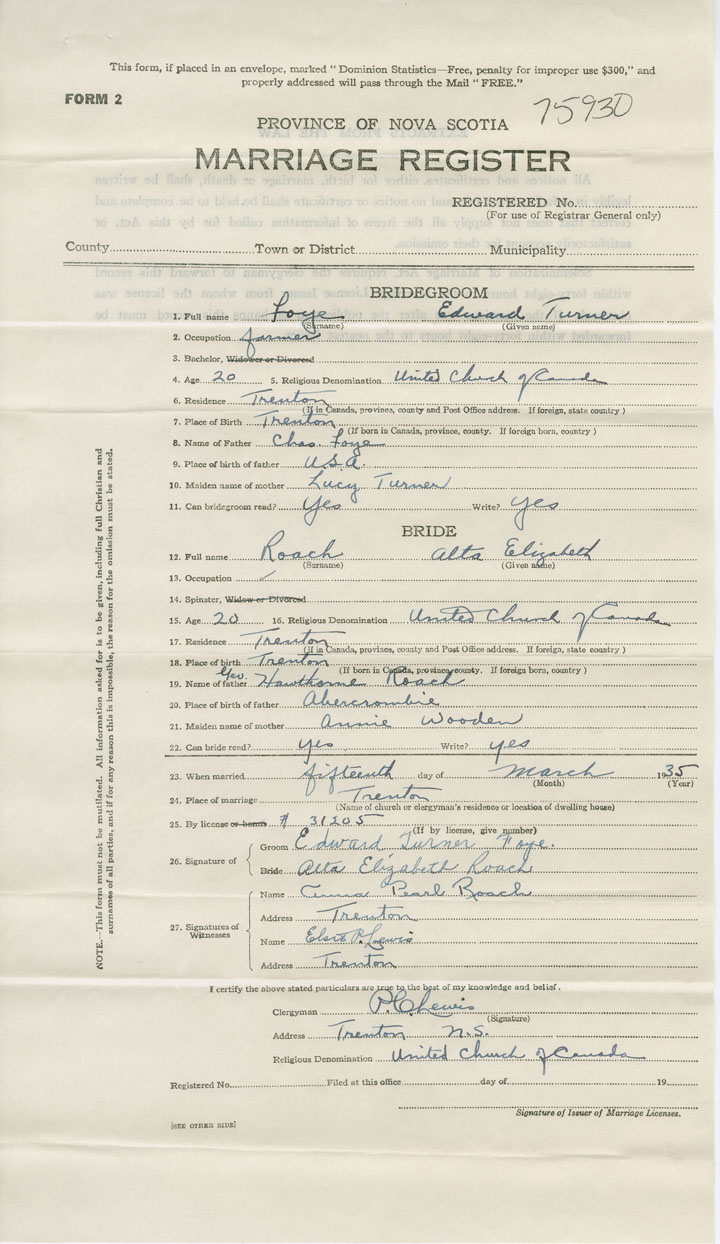 This form, if placed in an envelope, marked "Dominion Statistics—Free, penalty for improper use $300," and
properly addressed will pass through the Mail "FREE."
FORM 2
75930
PROVINCE OF NOVA SCOTIA
MARRIAGE REGISTER
REGISTERED No.
(For use of Registrar General only)
County Town or District Municipality
BRIDEGROOM
1. Full name Foye Edward Turner
(Surname) (Given name)
2. Occupation farmer
3. Bachelor, Widower or Divorced
4. Age 20 5. Religious Denomination United Church of Canada
6. Residence Trenton
(If in Canada, province, county and Post Office address. If foreign, state country)
7. Place of Birth Trenton
(If born in Canada, province, county. If foreign born, country)
8. Name of Father Chas. Foye
9. Place of birth of father U.S.A.
10. Maiden name of mother Lucy Turner
11. Can bridegroom read? Yes Write? yes
BRIDE
12. Full name Roach Alta Elizabeth
(Surname) (Given name)
13. Occupation
14. Spinster, Widow or Divorced
15. Age 20 16. Religious Denomination United Church of Canada
17. Residence Trenton
(If in Canada, province, county and Post Office address. If foreign, state country)
18. Place of birth Trenton
(If born in Canada, province, county. If foreign born, country)
19. Name of father Geo. Hawthorne Roach
20. Place of birth of father Abercrombie
21. Maiden name of mother Annie Wooden
22. Can bride read? yes Write? yes
23. When married fifteenth day of March 1935
(Month) (Year)
24. Place of marriage Trenton
(Name of church or clergyman's residence or location of dwelling house)
25. By license or banns # 31205
(If by license, give number)
26. Signature of
Groom Edward Turner Foye.
Bride Alta Elizabeth Roach
27. Signatures of Witnesses
Name Anna Pearl Roach
Address Trenton
Name Elsie P. Lewis
Address Trenton
I certify the above stated particulars are true to the best of my knowledge and belief.
Clergyman P.C. Lewis
(Signature)
Address Trenton N.S.
Religious Denomination United Church of Canada
Registered No. Filed at this office day of 19
Signature of Issuer of Marriage Licenses.
[SEE OTHER SIDE]
NOTE.—This form must not be mutilated. All information asked for is to be given, including full Christian and
surnames of all parties, and if for any reason this is impossible, the reason for the omission must be stated.